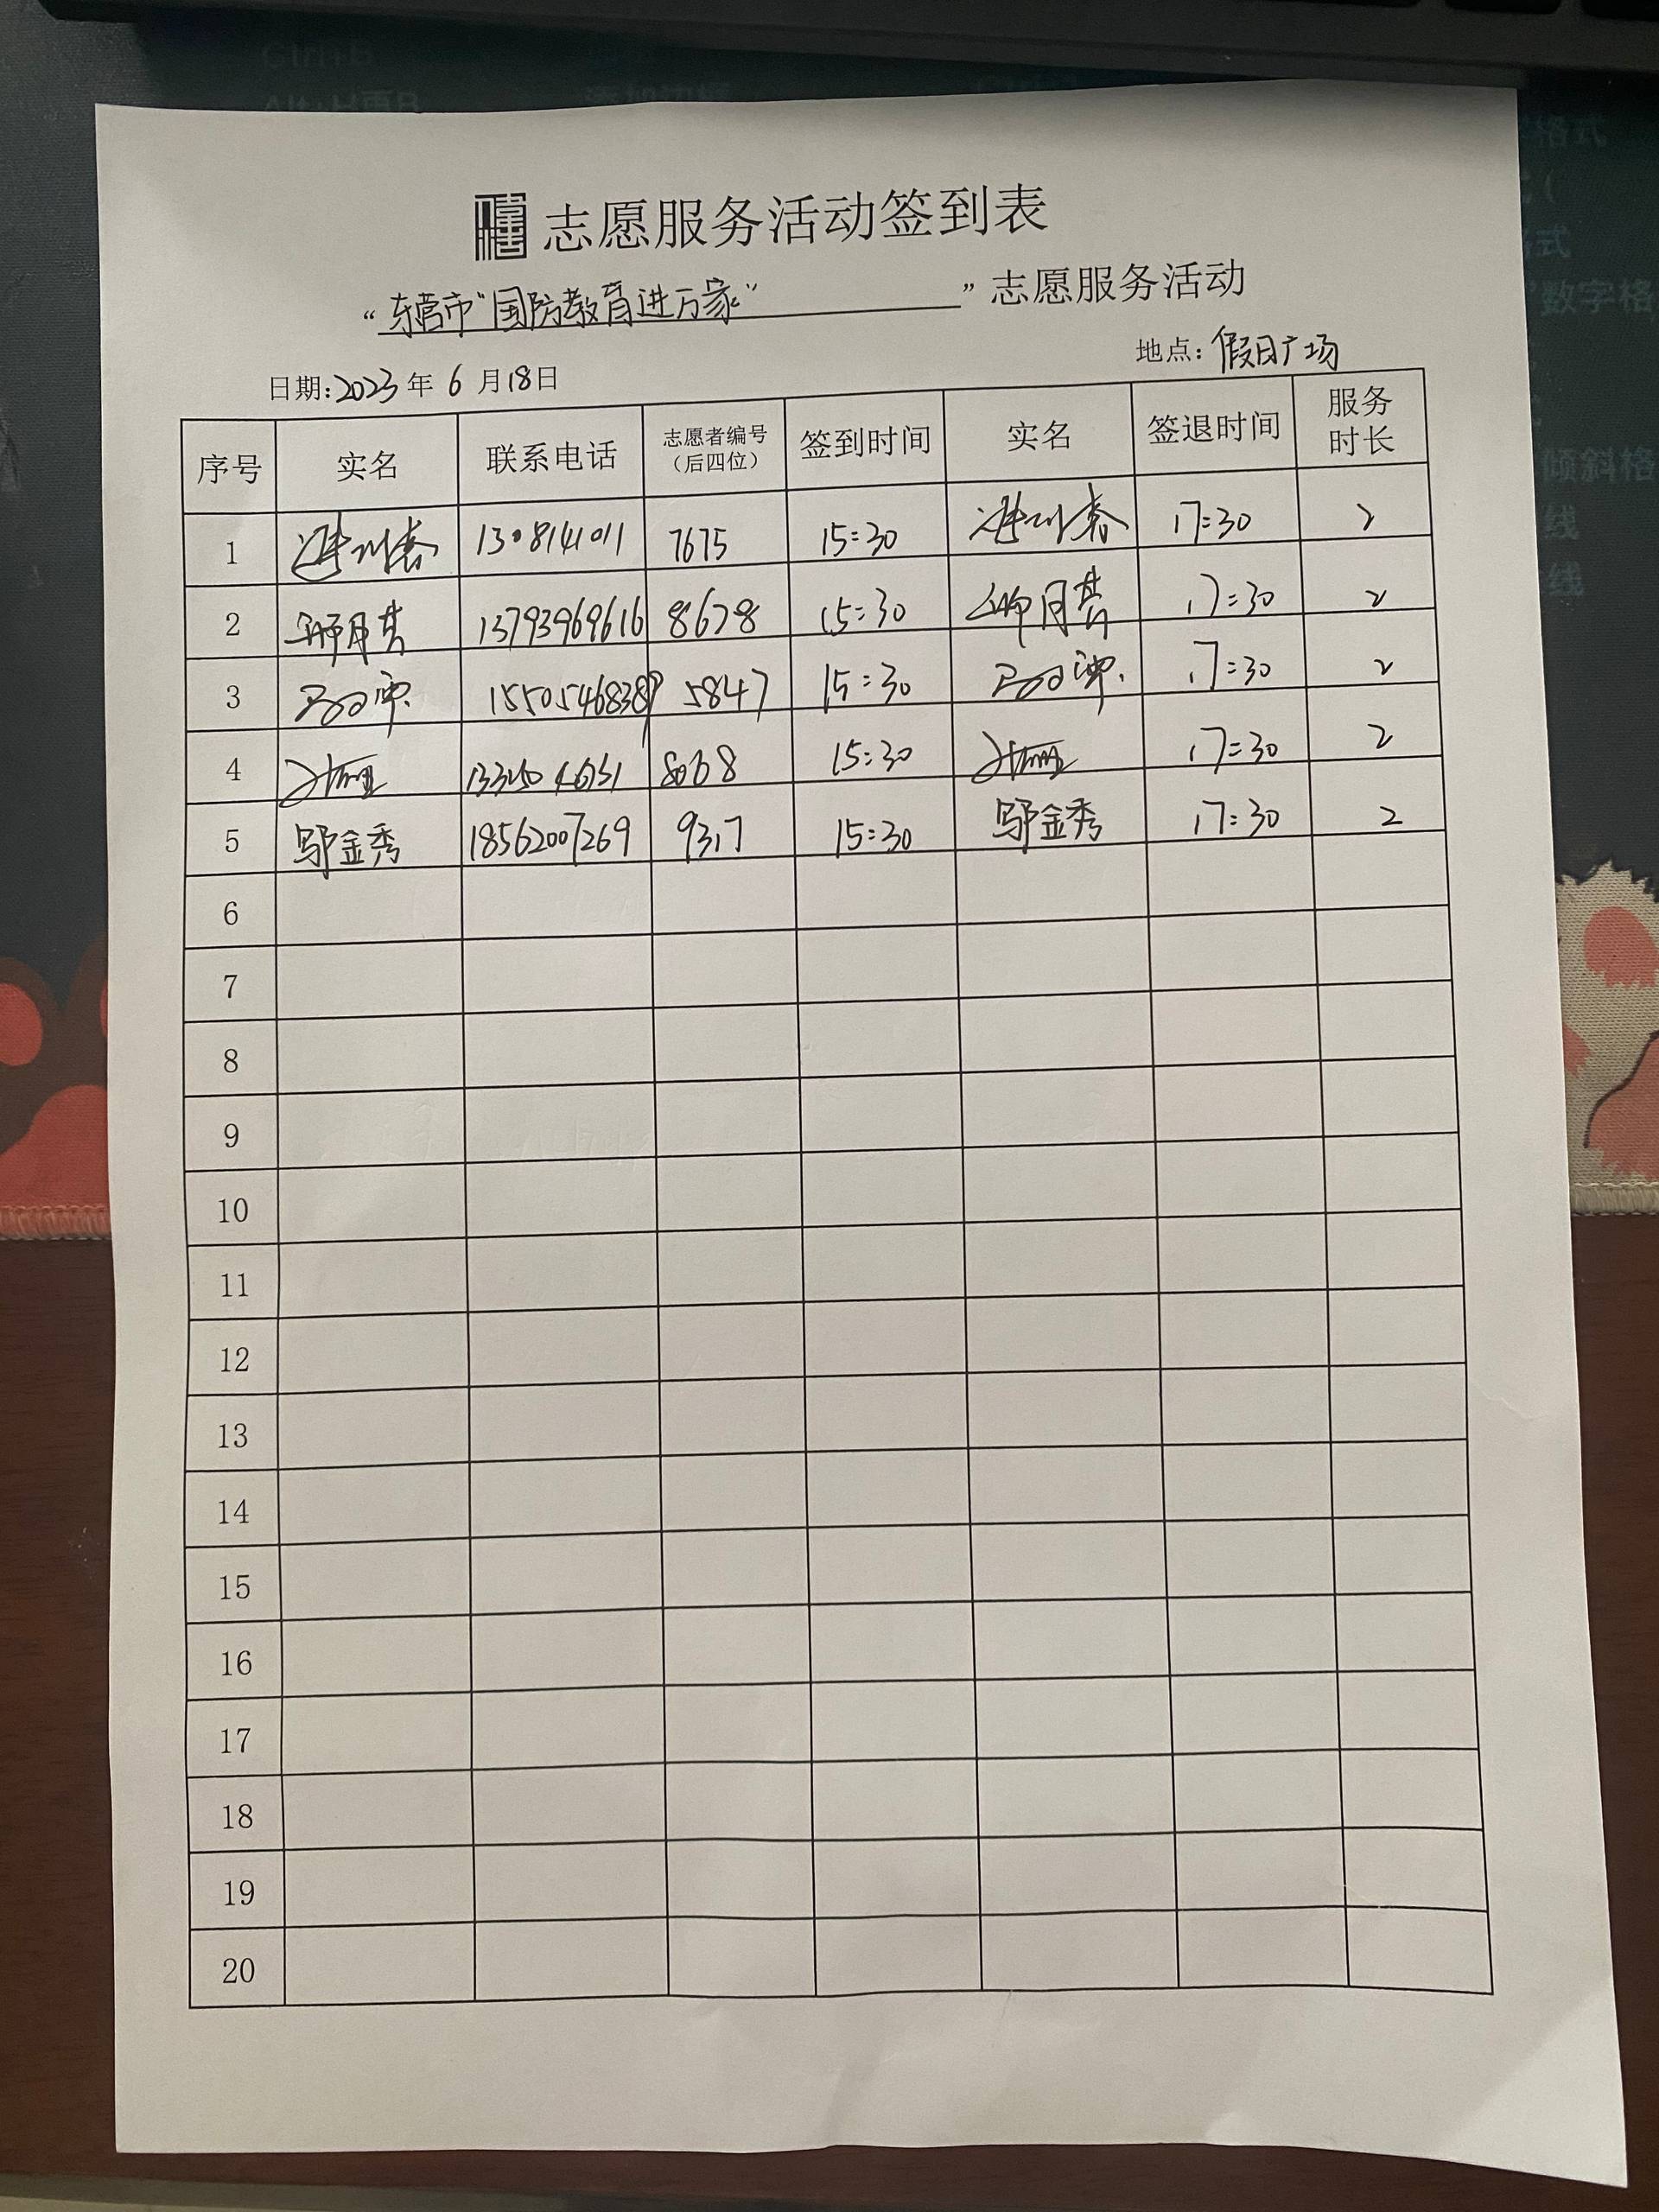 志愿服务活动签到表
“东营市“国防教育进万家””志愿服务活动
日期:2023年6月18日 地点:假日广场
序号 实名 联系电话 志愿者编号（后四位） 签到时间 实名 签退时间 服务时长
1 7675 15:30 17:30 2
2 13793969616 8678 15:30 17:30 2
3 15505468389 5847 15:30 17:30 2
4 8068 15:30 17:30 2
5 邬金秀 18562007269 9317 15:30 邬金秀 17:30 2
6
7
8
9
10
11
12
13
14
15
16
17
18
19
20